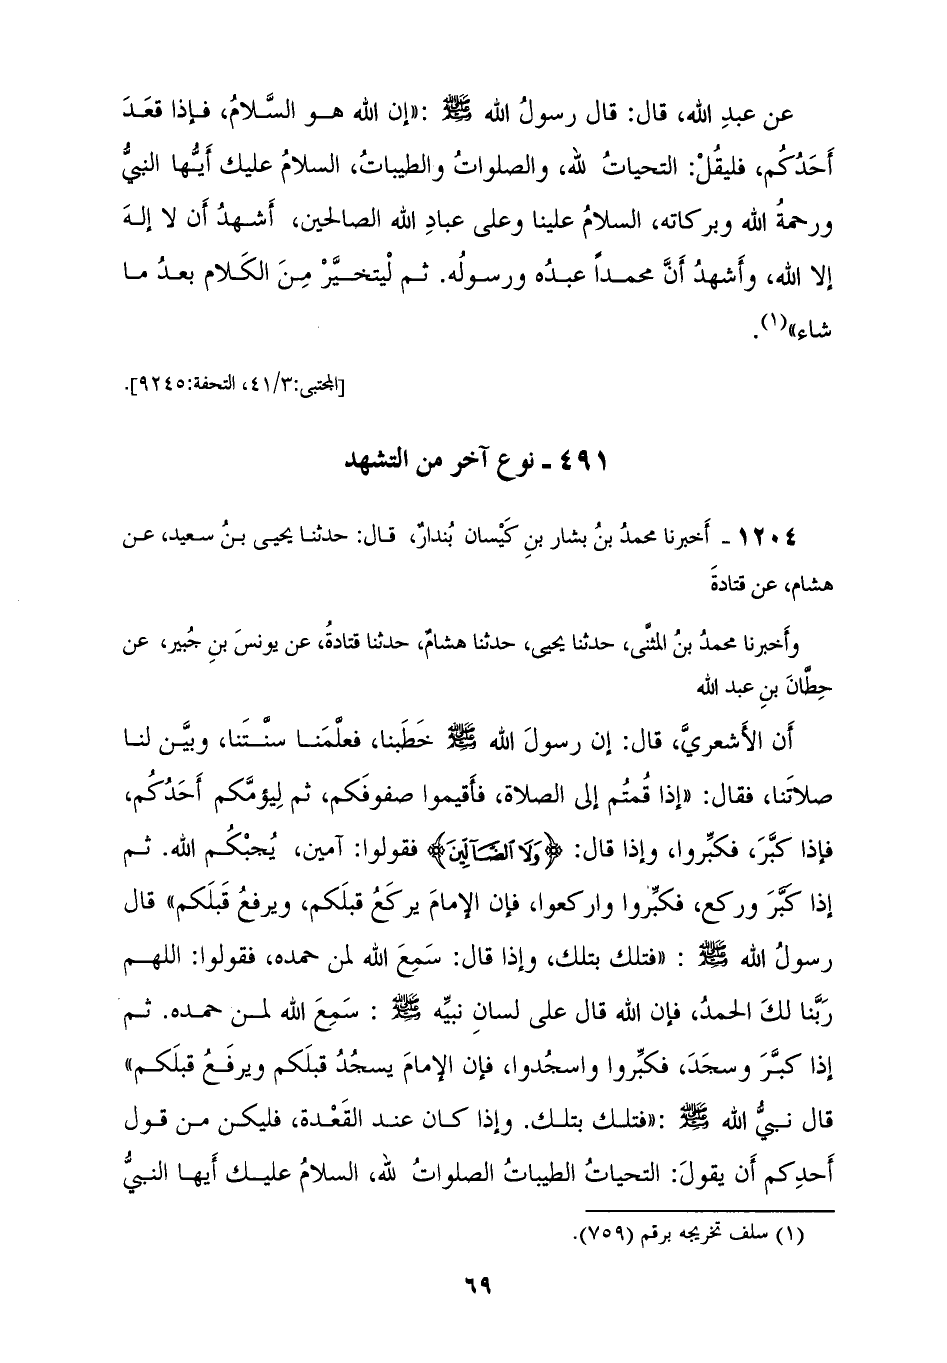 عن عبدِ الله، قال: قال رسولُ الله ﷺ :«إن الله هـو السَّلامُ، فـإذا قعَـدَ
أحَدُكُم، فليقُلْ: التحياتُ لله، والصلواتُ والطيباتُ، السلامُ عليك أيُّها النبيُّ
ورحمةُ الله وبركاته، السلامُ علينا وعلى عبادِ الله الصالحين، أشهدُ أن لا إلهَ
إلا الله، وأشهدُ أنَّ محمـداً عبدُه ورسـولُه. ثـم لْيتخـيَّرْ مِـنَ الكَـلام بعـدُ مـا
شاء»(١).
[المجتبى:٤١/٣، التحفة:٩٢٤٥].
٤٩١ ـ نوع آخر من التشهد
١٢٠٤ ـ أخبرنا محمدُ بنُ بشار بنِ كَيْسان بُندارٌ، قـال: حدثنـا يحيـى بـنُ سـعيد، عـن
هشام، عن قتادةَ
وأخبرنا محمدُ بنُ المثنَّى، حدثنا يحيى، حدثنا هشامٌ، حدثنا قتادةُ، عن يونسَ بنِ جُبير، عن
حِطَّانَ بنِ عبد الله
أن الأشعريَّ، قال: إن رسولَ الله ﷺ خَطَبنا، فعلَّمَنـا سنَّـتَنا، وبيَّـن لنـا
صلاتَنا، فقال: «إذا قُمتُم إلى الصلاة، فأقيموا صفوفَكم، ثم لِيؤمَّكم أحَدُكُم،
فإذا كبَّرَ، فكبِّروا، وإذا قال: ﴿وَلَا ٱلضَّآلِّينَ﴾ فقولوا: آمين، يُجبْكُـم الله. ثـم
إذا كَبَّرَ وركع، فكبِّروا واركعوا، فإن الإمامَ يركَعُ قبلَكم، ويرفعُ قَبلَكم» قال
رسولُ الله ﷺ : «فتلك بتلك، وإذا قال: سَمِعَ الله لمن حمده، فقولوا: اللهـم
رَبَّنا لكَ الحمدُ، فإن الله قال على لسانِ نبيِّه ﷺ : سَمِعَ الله لمـن حمـده. ثـم
إذا كبَّـرَ وسـجَدَ، فكبِّروا واسجُدوا، فإن الإمامَ يسجُدُ قبلَكم ويرفَـعُ قبلَكـم»
قال نـبيُّ الله ﷺ :«فتلـك بتلـك. وإذا كـان عنـد القَعْـدة، فليكـن مـن قـول
أحدِكم أن يقولَ: التحياتُ الطيباتُ الصلواتُ لله، السلامُ عليـك أيهـا النبيُّ
(١) سلف تخريجه برقم (٧٥٩).
٦٩